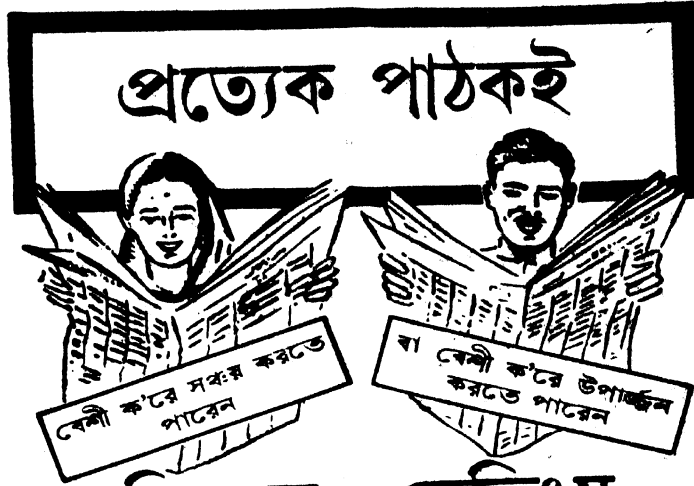 প্রত্যেক পাঠকই
বেশী ক'রে সঞ্চয় করতে
পারেন
বা বেশী ক'রে উপার্জ্জন
করতে পারেন